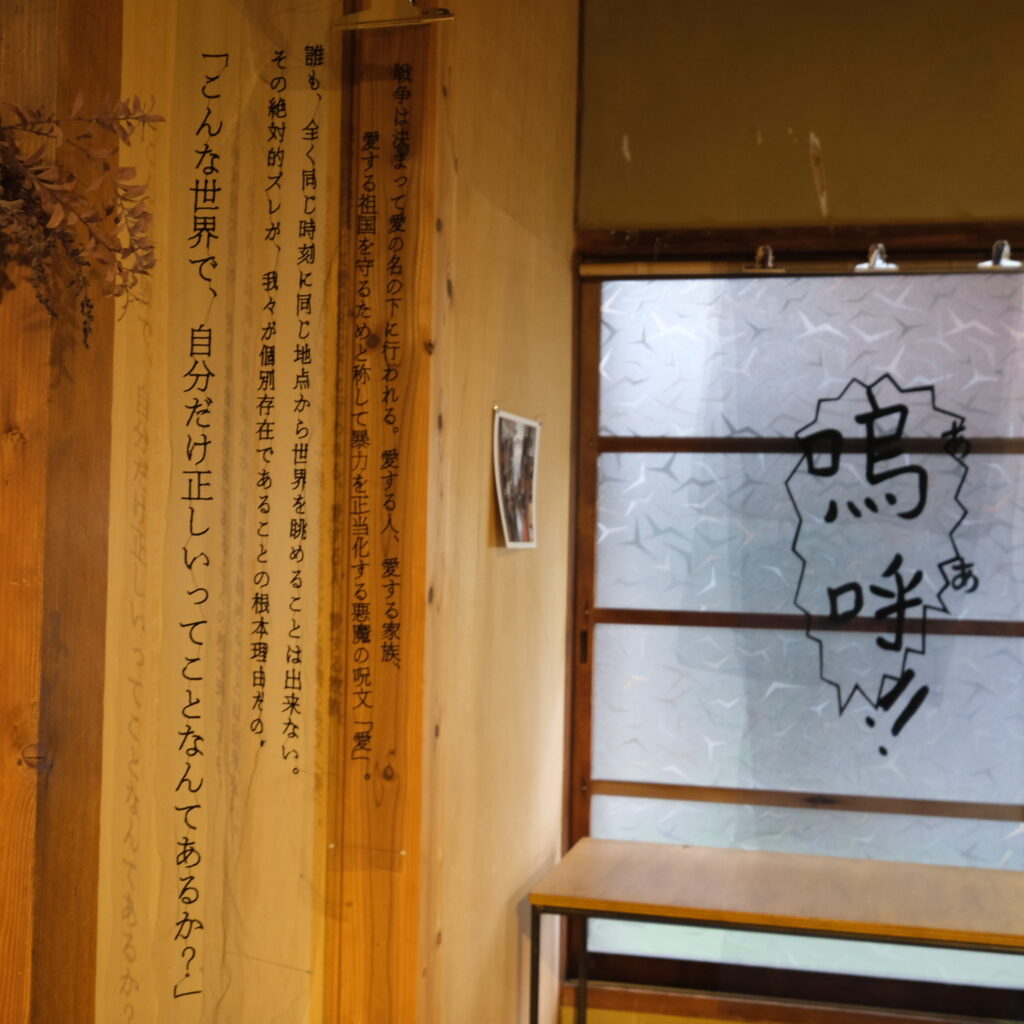 嗚呼!!
ああ
戦争は決まって愛の名の下に行われる。愛する人、愛する家族、
愛する祖国を守るためと称して暴力を正当化する悪魔の呪文「愛」。
誰も、全く同じ時刻に同じ地点から世界を眺めることは出来ない。
その絶対的ズレが、我々が個別存在であることの根本理由だの。
「こんな世界で、自分だけ正しいってことなんてあるか?」